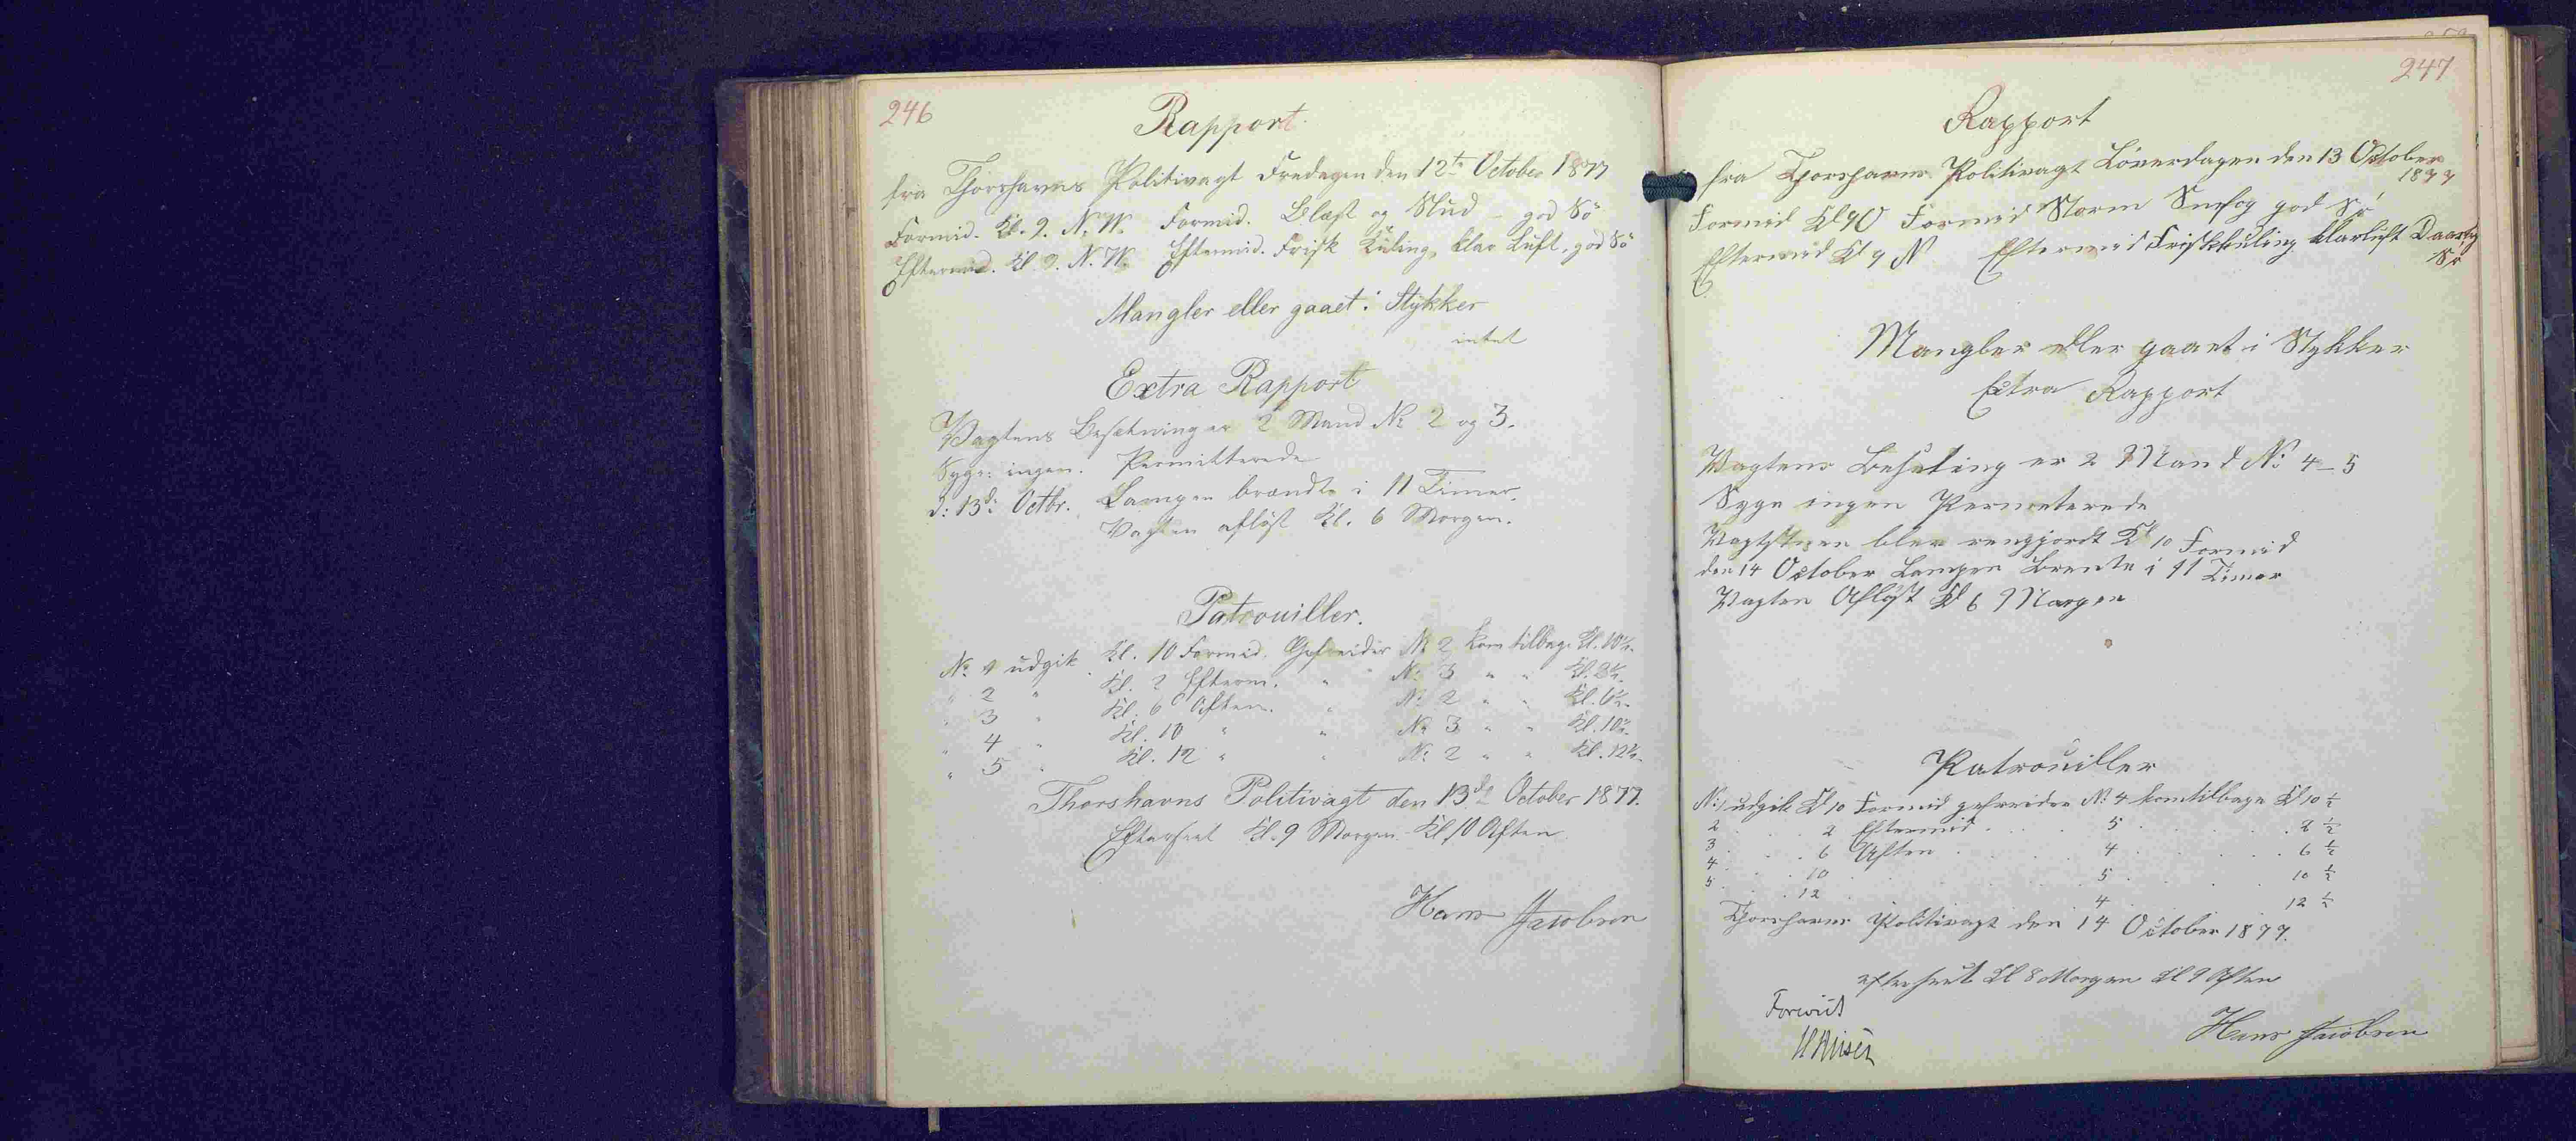 246
Rapport.
fra Thorshavns Politivagt Fredagen den 12te October 1877
Formid. Kl. 9. N.W. Formid. Blæst og Slud - god Sö
Eftermid. Kl. 9. N.W. Eftermid. Frisk Kuling, klar Luft, god Sö
Mangler eller gaaet i Stykker
intet
Extra Rapport
Vagtens Besetning er 2 Mand No 2 og 3.
Syge: ingen. Permitterede
d: 13de Octbr. Lampen brændte i 11 Timer.
Vagten aflöst Kl. 6 Morgen.
Patrouiller.
No 1 udgik Kl. 10 Formid. Gefreider No 2 kom tilbage Kl. 10½.
" 2 " Kl. 2 Efterm. " No 3 " " Kl. 2½.
" 3 " Kl. 6 Aften. " No 2 " " Kl. 6½.
" 4 " Kl. 10 " " No 3 " " Kl. 10½.
" 5 " Kl. 12 " " No 2 " " Kl. 12½.
Thorshavns Politivagt den 13de October 1877.
Efterseet Kl. 9 Morgen - Kl. 10 Aften
Hans Jacobsen
247
Rapport
fra Thorshavns Politivagt Löverdagen den 13 October
1877
Formid Kl 9 O Formid Storm Snefog god Sö
Eftermid Kl 9 N Eftermid Friskkuling klarluft Daarlig
Sö
Mangler eller gaaet i Stykker
Extra Rapport
Vagtens Beseting er 2 Mand No 4 - 5
Syge ingen Permeterede
Vagtstuen blev rengjordt Kl 10 Formid
den 14 October Lampen Brente i 11 Timer
Vagten Aflöst Kl 6 Morgen
Patrouiller
No 1 udgik Kl 10 Formid gefreider No 4 kom tilbage Kl 10 ½
2 . . . 2 Eftermid . . . 5 . . . 2 ½
3 . . . 6 Aften . . . 4 . . . 6 ½
4 . . . 10 . . . 5 . . . 10 ½
5 . . . 12 . . . 4 . . . 12 ½
Thorshavns Politivagt den 14 October 1877.
efterseet Kl 8 Morgen Kl 9 Aften
Foreviist
Hans Jacobsen